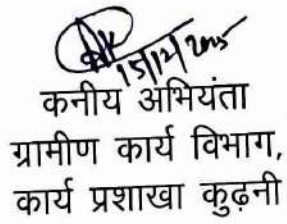 15/12/2005
कनीय अभियंता
ग्रामीण कार्य विभाग,
कार्य प्रशाखा कुढ़नी